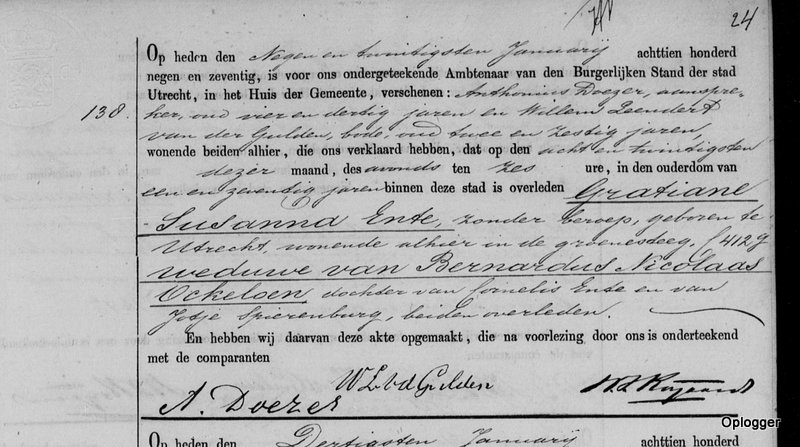 24
Op heden den Negen en twintigsten Januarij achttien honderd
negen en zeventig, is voor ons ondergeteekende Ambtenaar van den Burgerlijken Stand der stad
Utrecht, in het Huis der Gemeente, verschenen: Anthonius Doezer, aanspre-
138. ker, oud vier en dertig jaren en Willem Leendert
van der Gulden, bode, oud twee en zestig jaren,
wonende beiden alhier, die ons verklaard hebben, dat op den acht en twintigsten
dezer maand, des avonds ten zes ure, in den ouderdom van
een en zeventig jaren binnen deze stad is overleden Gratiane
Susanna Ente, zonder beroep, geboren te
Utrecht, wonende alhier in de groenesteeg, 412g
weduwe van Bernardus Nicolaas
Ockeloen dochter van Cornelis Ente en van
Jotje Spierenburg, beiden overleden.
En hebben wij daarvan deze akte opgemaakt, die na voorlezing door ons is onderteekend
met de comparanten
W L vd Gulden
A. Doezer
Op heden den Dertigsten Januarij achttien honderd
Oplogger